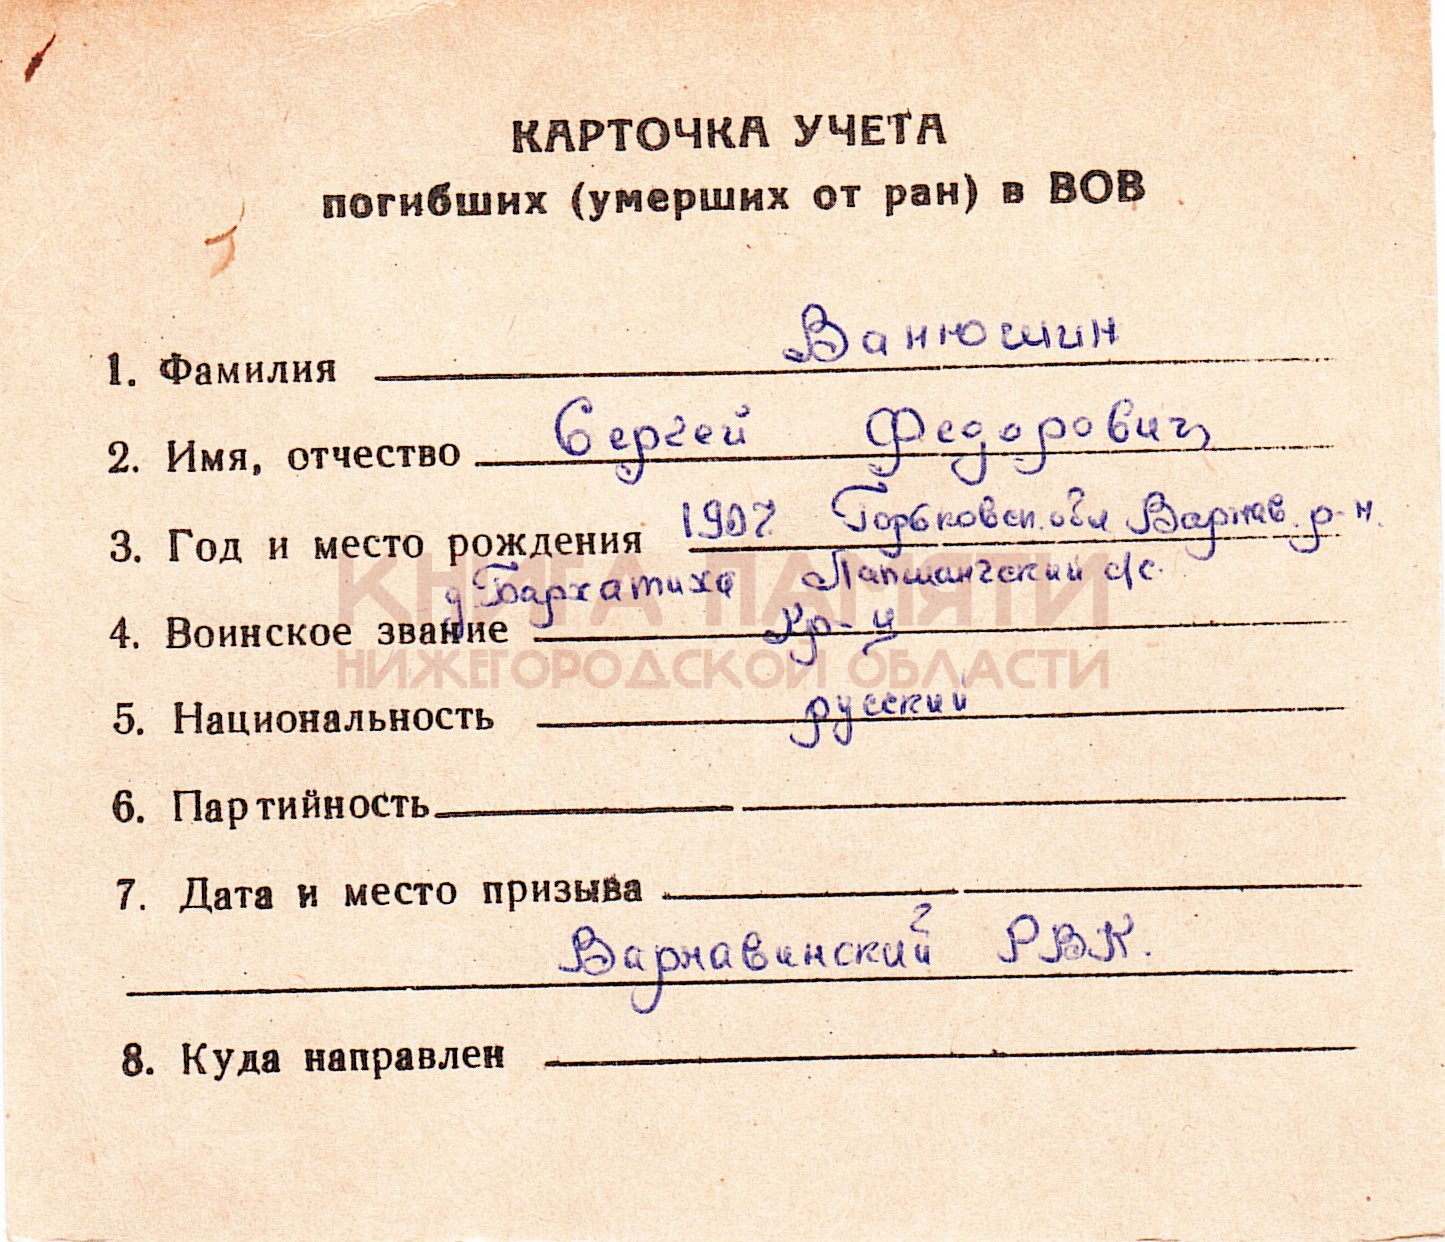 КАРТОЧКА УЧЕТА
погибших (умерших от ран) в ВОВ
1. Фамилия Ванюшин
2. Имя, отчество Сергей Федорович
3. Год и место рождения 1907 Горьковск. обл Варнав. р-н.
д Бархатиха Лапшангский с/с.
4. Воинское звание кр-ц
5. Национальность русский
6. Партийность
7. Дата и место призыва
Варнавинский РВК.
8. Куда направлен
КНИГА ПАМЯТИ
НИЖЕГОРОДСКОЙ ОБЛАСТИ